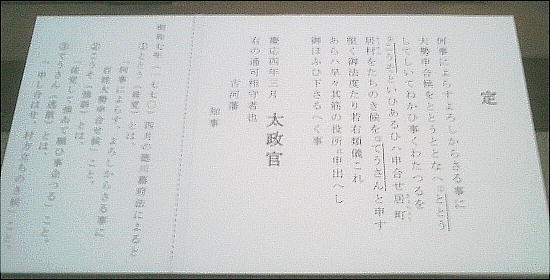 定
何事によらすよろしからさる事に
大勢申合候をととうととなへ①ととう
してしいてねかひ事くわたつるを
②こうそといひあるひハ申合せ居町
居村をたちのき候を③てうさんと申す
堅く御法度たり若右類儀これ
あらハ早々其筋の役所江申出へし
御ほふひ下さるへく事
慶応四年三月 太政官
右の通可相守者也
古河藩
知事
明和七年(一七七〇)四月の徳川幕府法によると
①ととう(徒党)とは、
「何事によらす、よろしからさる事に
百姓大勢申合せ候」こと。
②こうそ(強訴)とは、
「徒党して強ゐて願ひ事企つる」こと。
③てうさん(逃散)とは、
「申し合はせ、村方立ちのき候」こと。